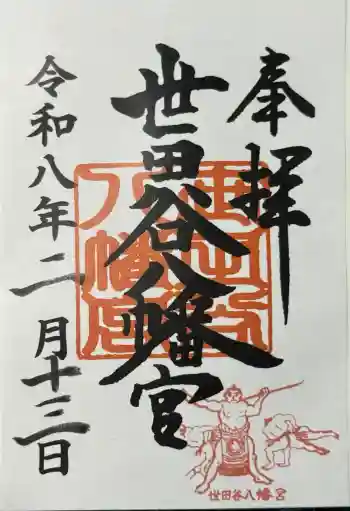 奉拝
世田谷八幡宮
令和八年二月十三日
世田谷八幡宮
世田谷八幡宮